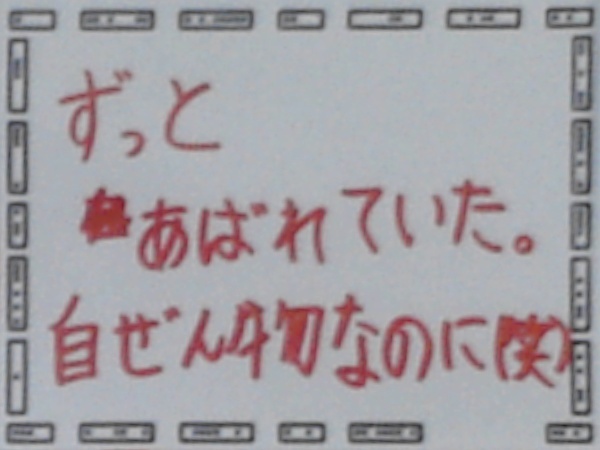 ずっと
あばれていた。
自ぜん体なのに(笑)